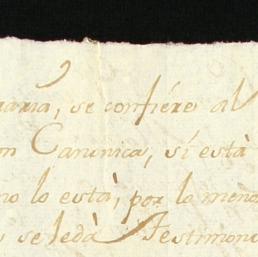 se confiére al
Canonica, sí está
no lo está, por lo meno
se le dà Testimon